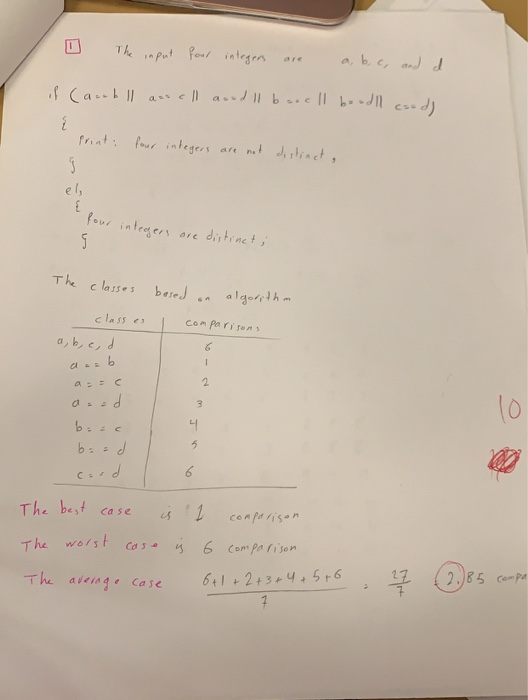 1 The input four integers are a, b, c, and d
if (a==b || a==c || a==d || b==c || b==d || c==d)
{
Print: four integers are not distinct,
}
els
{
four integers are distinct;
}
The classes based on algorithm
classes comparisons
a, b, c, d 6
a==b 1
a==c 2
a==d 3
b==c 4
b==d 5
c==d 6
10
The best case is 1 comparison
The worst case is 6 comparison
The average case 6+1+2+3+4+5+6 / 7 = 27/7 = 2.85 compa